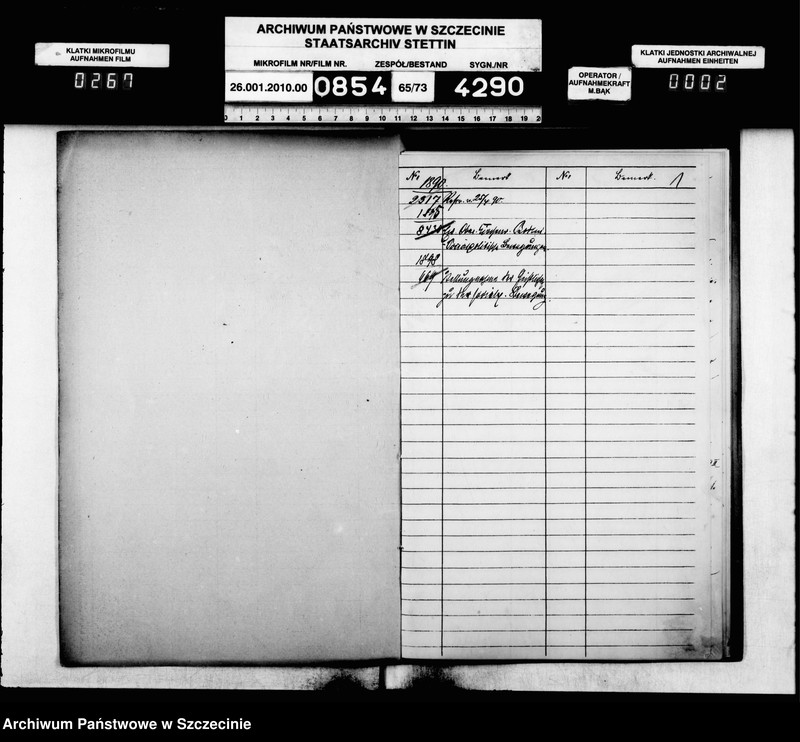 ARCHIWUM PAŃSTWOWE W SZCZECINIE
STAATSARCHIV STETTIN
KLATKI MIKROFILMU
AUFNAHMEN FILM
0267
MIKROFILM NR/FILM NR. ZESPÓŁ/BESTAND SYGN./NR
26.001.2010.00 0854 65/73 4290
OPERATOR /
AUFNAHMEKRAFT
M.BĄK
KLATKI JEDNOSTKI ARCHIWALNEJ
AUFNAHMEN EINHEITEN
0002
0 1 2 3 4 5 6 7 8 9 10 11 12 13 14 15 16 17 18 19 2
No Bemerk No Bemerk. 1
1890
2317
1895
Socialpolitische Bewegungen.
1898
Stellungnahme der Geistlichen
zu der Bewegung
Archiwum Państwowe w Szczecinie